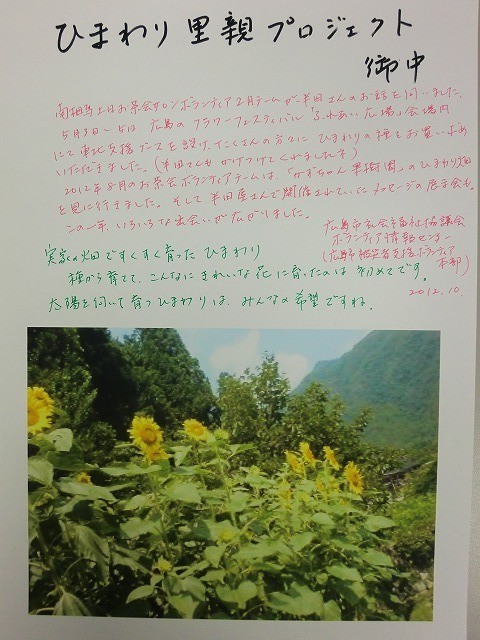 ひまわり里親プロジェクト
御中
南相馬土日お茶会サロンボランティア2月チームが半田さんのお話を伺いました。
5月3日~5は 広島のフラワーフェスティバル「ふれあい広場」会場内
にて東北支援ブースを設け、たくさんの方々に ひまわりの種をお買い求め
いただきました。(半田さんもかけつけてくれましたネ)
2012年8月のお茶会ボランティアチームは、「かずちゃん果樹園」のひまわり畑
を見に行きました。そして 半田屋さんで開催されていたメッセージの展示会も。
この一年、いろいろな出会いが広がりました。
広島市社会福祉協議会
ボランティア情報センター
(広島市被災者支援ボランティア
本部)
2012.10.
実家の畑ですくすく育った ひまわり
種から育てて、こんなにきれいな花に育ったのは 初めてです。
太陽を向いて育つひまわりは、みんなの希望ですね。